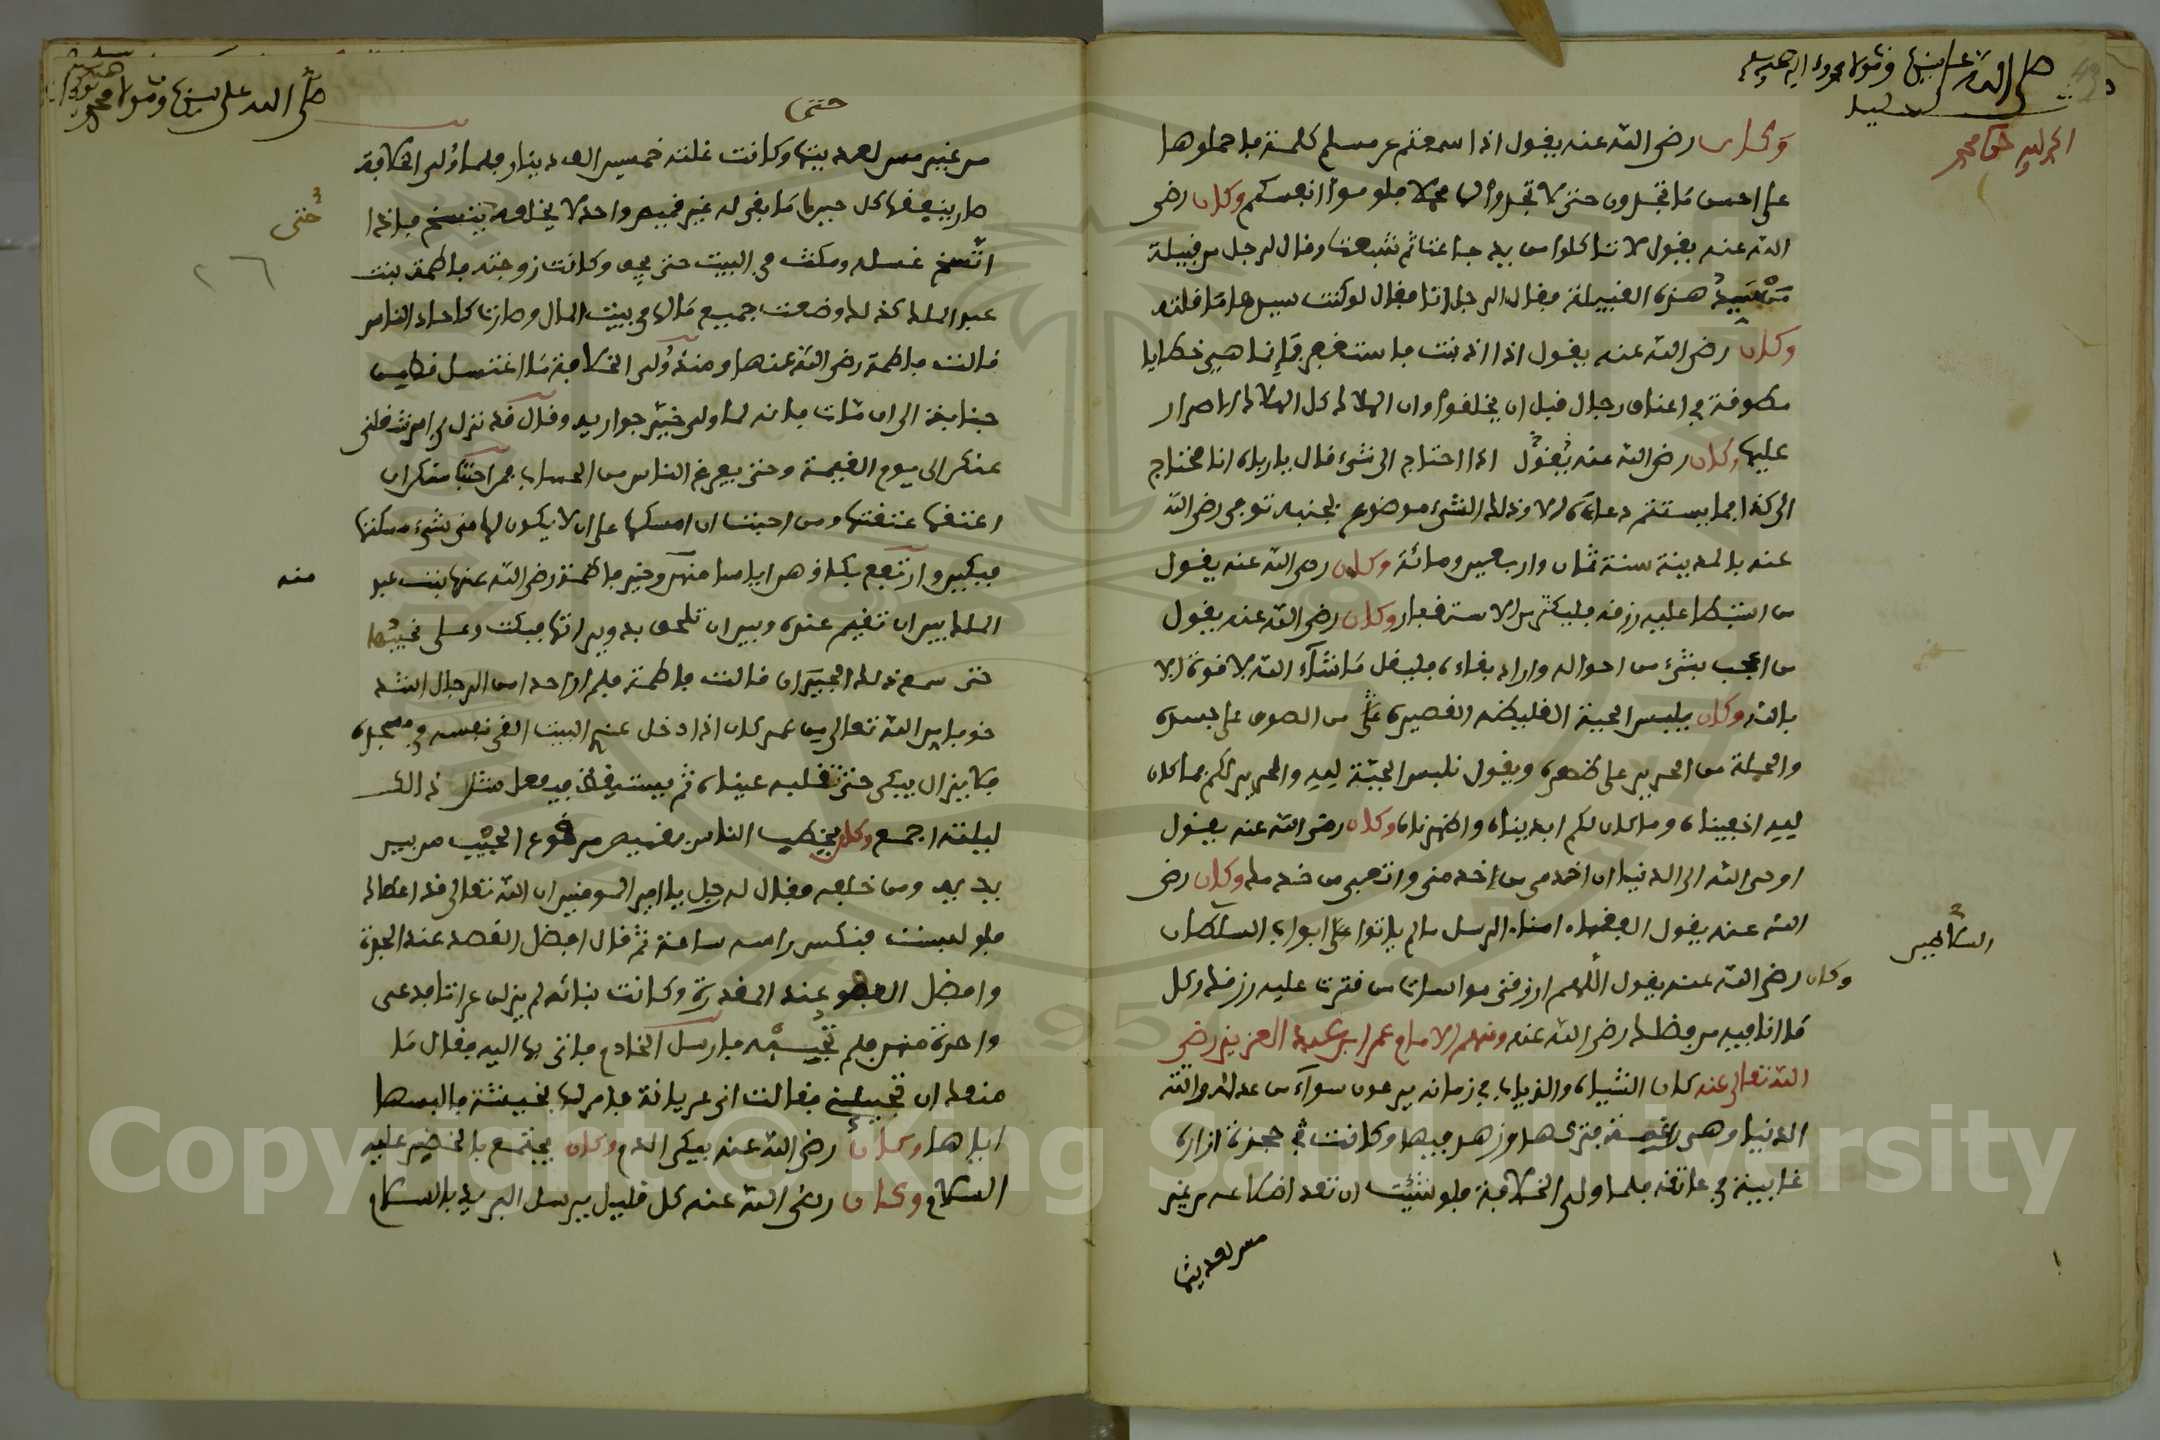 صلى الله على نبينا ومولانا محمد وءاله وصحبه وسلم
الحمد لله حق حمده
وكان رضي الله عنه يقول اذا سمعتم عن مسلم كلمة فاحملوها
على احسن ما تجدون حتى لا تجدوا لها محملا فلوموا انفسكم وكان رضي
الله عنه يقول لا تاكلوا من يد جاعت ثم شبعت وقال لرجل من قبيلة
من سيد هذه القبيلة فقال الرجل انا فقال لو كنت سيدها ما قلته
وكان رضي الله عنه يقول اذا اذنبت فاستغفر فإنما هي خطايا
مطوقة في اعناق رجال قبل ان يخلقوا وان الهلاك كل الهلاك الاصرار
عليها وكان رضي الله عنه يقول اذا احتاج الى شيء قال يا رباه انا محتاج
الى كذا فما يستتم دعاءه الا وذلك الشيء موضوع بجنبه توفي رضي الله
عنه بالمدينة سنة ثمان واربعين ومائة وكان رضي الله عنه يقول
من استبطا عليه رزقه فليكثر من الاستغفار وكان رضي الله عنه يقول
من اعجب بشيء من احواله واراد بقاءه فليقل ما شاء الله لا قوة الا
بالله وكان يلبس الجبة الغليظة القصيرة من الصوف على جسده
والحلة من الحرير على ظهره ويقول نلبس الجبة لله والحرير لكم فما كان
لله اخفيناه وما كان لكم ابديناه واظهرناه وكان رضي الله عنه يقول
اوحى الله الى الدنيا ان اخدمي من خدمني واتعبي من خدمك وكان رضي
الله عنه يقول الفقهاء امناء الرسل ما لم ياتوا على ابواب السلطان
السلاطين
وكان رضي الله عنه يقول اللهم ارزقني مواسات من قترت عليه رزقك وكل
ما انا فيه من فضلك رضي الله عنه ومنهم الامام عمر ابن عبد العزيز رضي
الله تعالى عنه كان الشياه والذياب في زمانه يرعون سواء من عدله واتته
الدنيا وهي راغمة فتركها وزهد فيها وكانت حجزة ازاره
غايبة في عكنه فلما ولي الخلافة فلو شئت ان تعد اضلاعه من غير
مس لعديتها
صلى الله على نبينا ومولانا محمد
حتى
من غير مس لعديتها وكانت غلته خمسين الف دينار فلما ولي الخلافة
صار ينفقها كل حين ما بقي له غير قميص واحد لا يخلعه يتسخ فاذا
حتى
٢٦
اتسخ غسله ومكث في البيت حتى يجف وكانت زوجته فاطمة بنت
عبد الملك كذلك وضعت جميع مالها في بيت المال وصارت كاحاد الناس
قالت فاطمة رضي الله عنها ومنذ ولي الخلافة ما اغتسل قط من
جنابة الى ان مات فانه لما ولي خير جواريه وقال قد نزل بي امر شغلني
عنكن الى يوم القيمة وحتى يفرغ الناس من الحساب فمن احبت منكن ان
اعتقها عتقتها ومن احبت ان امسكها على ان لا يكون لها مني شيء مسكتها
فبكين وارتفع بكاؤهن اياسا منه وخير فاطمة رضي الله عنها بنت عبد
منه
الملك بين ان تقيم عنده وبين ان تلحق بدار ابيها فبكت وعلى نحيبها
حتى سمع ذلك الجيران قالت فاطمة فلم ار احدا من الرجال اشد
خوفا من الله تعالى من عمر كان اذا دخل عندي البيت القى نفسه في مسجده
فلا يزال يبكي حتى تغلبه عيناه ثم يستيقظ فيفعل مثل ذالك
ليلته اجمع وكان يخطب الناس بقميص مرقوع الجيب من بين
يديه ومن خلفه فقال له رجل يا امير المومنين ان الله تعالى قد اعطاك
فلو لبست فنكس راسه ساعة ثم قال افضل القصد عند الجدة
وافضل العفو عند المقدرة وكانت بناته لم يزلن عراتا فدعى
واحدة منهن فلم تجبه فارسل الخادم فاتى بها اليه فقال ما
منعك ان تجيبيني فقالت اني عريانة فامر لها بخيشة فالبسها
اياها وكان رضي الله عنه يبكي الدم وكان يجتمع بالخضر عليه
السلام وكان رضي الله عنه كل قليل يرسل البريد بالسلام
Copyright © King Saud University
1957